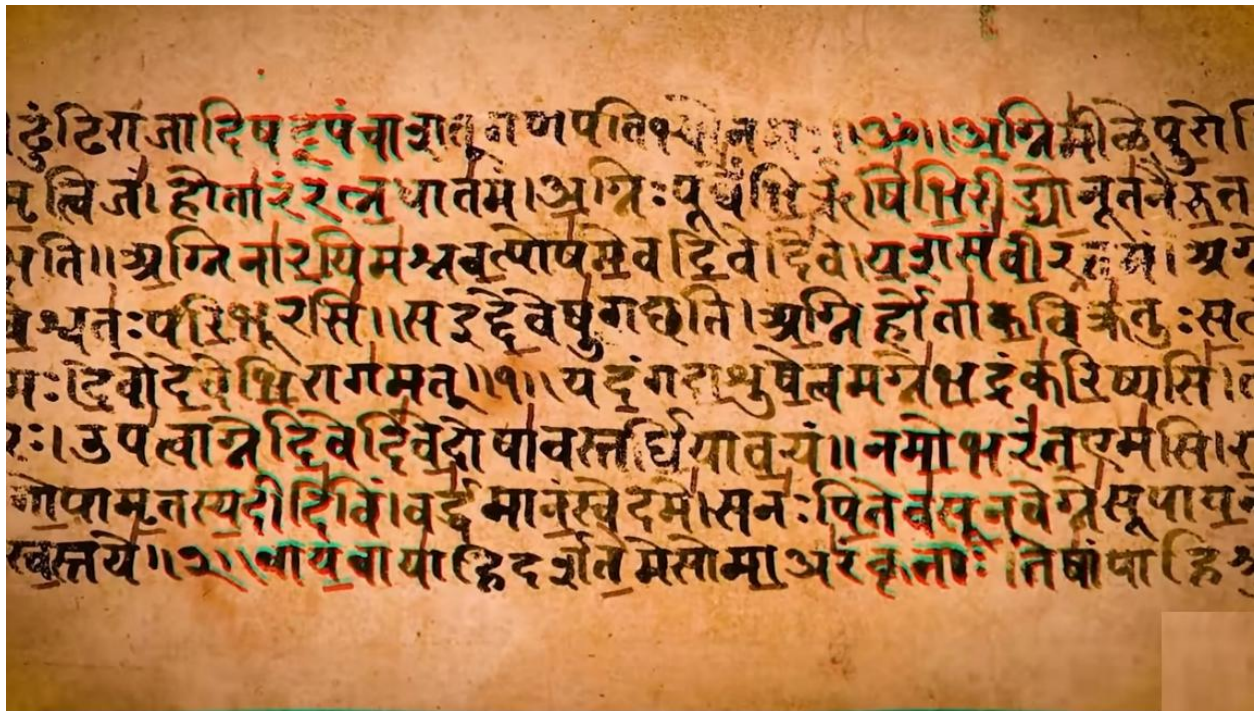 ढुंढिराजादिषट्पंचाशत् गणपतिभ्यो नमः ॥ॐ॥ अ॒ग्निमी॑ळे पु॒रो
मृ॒त्विज॑म् । होता॑रं रत्न॒धात॑मं । अ॒ग्निः पूर्वे॑भि॒र्ऋषि॑भि॒रीड्यो॒ नूत॑नैरु॒त
क्षति ॥ अ॒ग्निना॑ र॒यिम॑श्नव॒त्पोष॑मे॒व दि॒वेदि॑वे । य॒शसं॑ वी॒रव॑त्तमं । अग्ने
वि॒श्वतः॑ परि॒भूरसि॑ ॥ स इद्दे॒वेषु॑ गछति । अ॒ग्निर्होता॑ क॒विक्र॑तुः स॒त्
मः । दे॒वो दे॒वेभि॒राग॑मत् ॥१॥ यदं॒ग दा॒शुषे॒ त्वमग्ने॑ भ॒द्रं क॑रि॒ष्यसि॑ ।
रः । उप॑ त्वाग्ने दि॒वेदि॑वे॒ दोषा॑वस्तर्द्धि॒या व॒यं ॥ नमो॒ भरं॑त॒ एम॑सि ।
गो॒पामृ॒तस्य॒ दीदि॑विं । वर्द्ध॑मानं॒ स्वे दमे॑ । स नः॑ पि॒तेव॑ सू॒नवेग्ने॑ सूपाय॒नो
स्व॒स्तये॑ ॥२॥ वाय॒वा या॑हि दर्शते॒मे सोमा॒ अरं॑कृताः । तेषां॑ पाहि श्रु